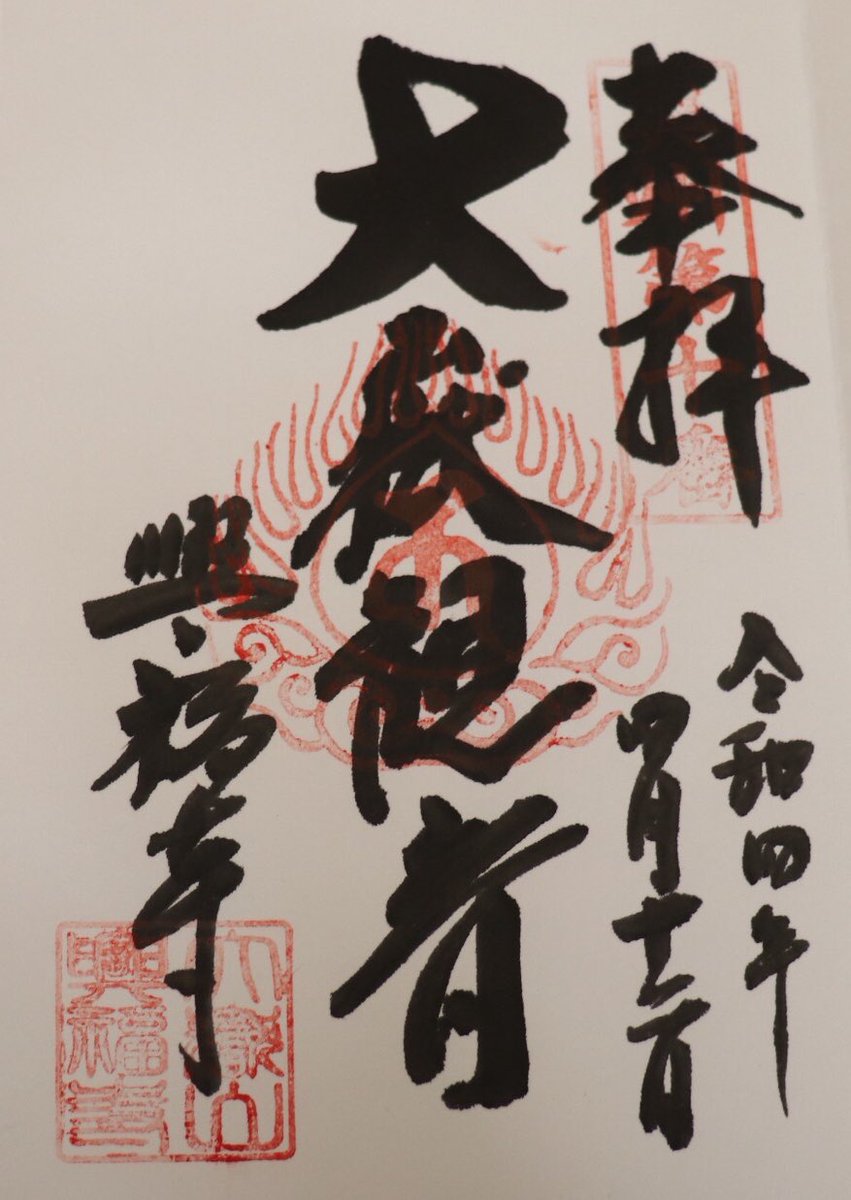 奉拝
令和四年
四月十二日
大嶽観音
興福寺
大嶽山
興福寺